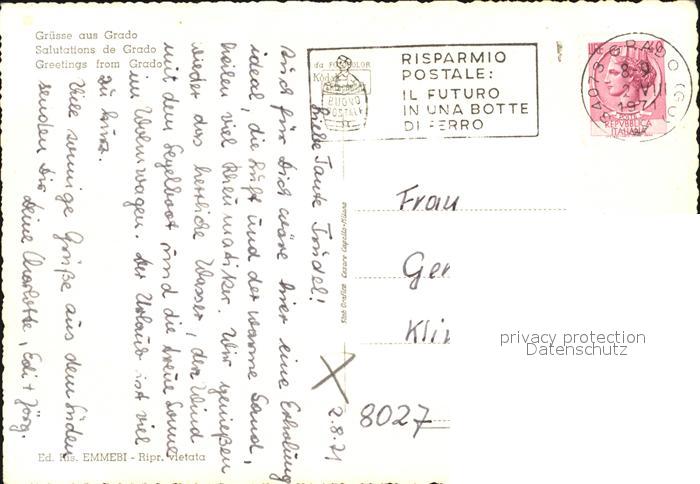 Grüsse aus Grado
Salutations de Grado
Greetings from Grado
da FOTOCOLOR
Kodak
BUONO
POSTALE
RISPARMIO
POSTALE:
IL FUTURO
IN UNA BOTTE
DI FERRO
LIRE 40
34073 GRADO (GO)
8-9
VIII
1971
REPVBBLICA
ITALIANA
2.8.71
Liebe Tante Trudel!
Auch für Dich wäre hier eine Erholung
ideal, die Luft und der warme Sand,
heilen viel Rheumatiker. Wir genießen
wieder das herrliche Wasser, den Wind
mit dem Segelboot und die treue Sonne
im Wohnwagen. Der Urlaub ist viel
zu kurz.
Viele sonnige Grüße aus dem Süden
senden Dir Deine Charlotte, Edi + Jörg.
Frau
Ger
Kli
8027
privacy protection
Datenschutz
Ed. Ris. EMMEBI - Ripr. vietata